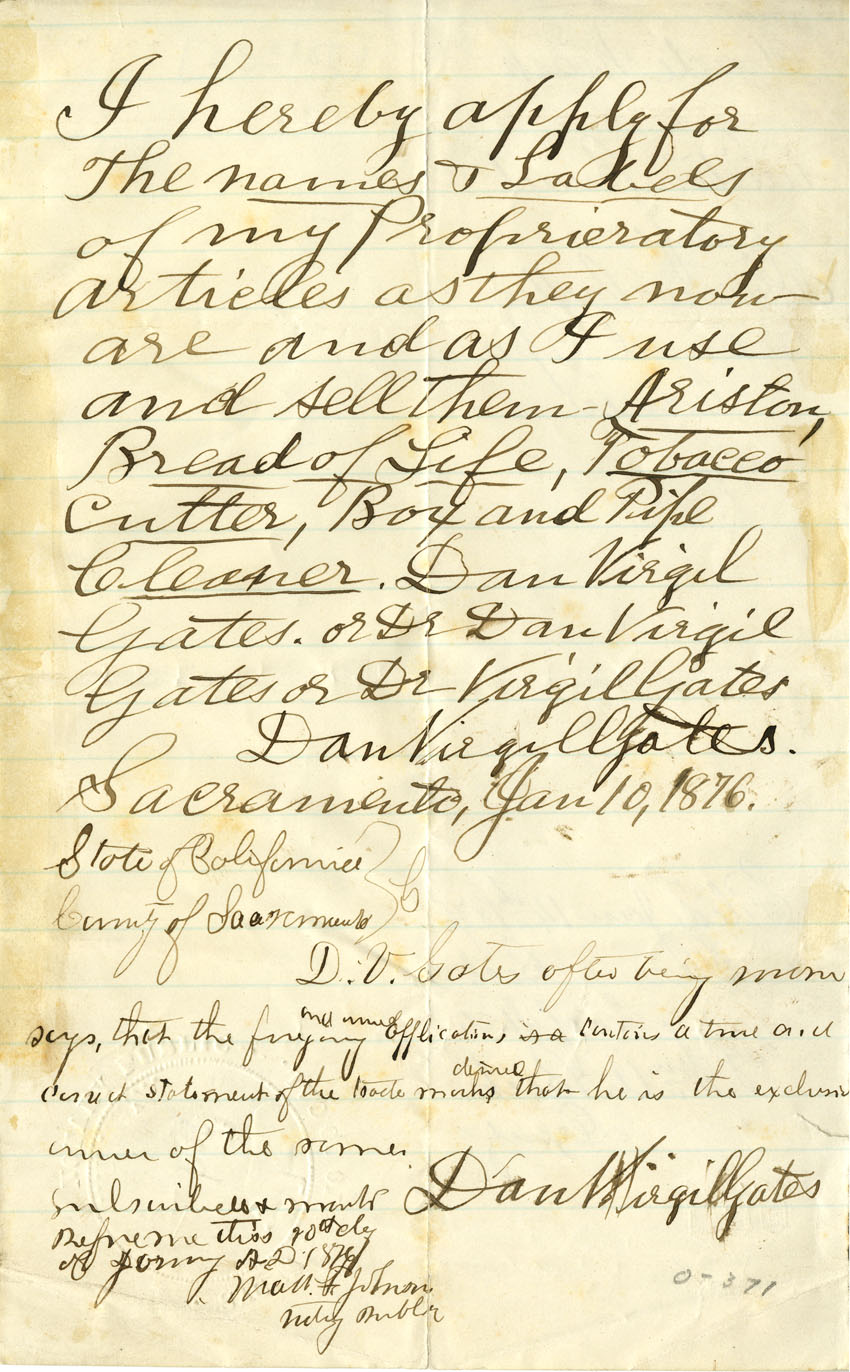 I hereby apply for
The names & Labels
of my Proprieratory
articles as they now
are and as I use
and sell them - Ariston,
Bread of Life, Tobacco
Cutter, Box and Pipe
Cleaner. Dan Virgil
Gates. or Dr Dan Virgil
Gates or Dr Virgil Gates
Dan Virgil Gates.
Sacramento, Jan 10, 1876.
State of California
County of Sacramento
D. V. Gates after being sworn
says, that the foregoing and annexed application is a contains a true and
correct statement of the trade marks desired that he is the exclusive
owner of the same.
Dan Virgil Gates
subscribed & sworn to
Before me this 10th day
of A.D. 1876
Matt. F. Johnson
Notary Public
0-371